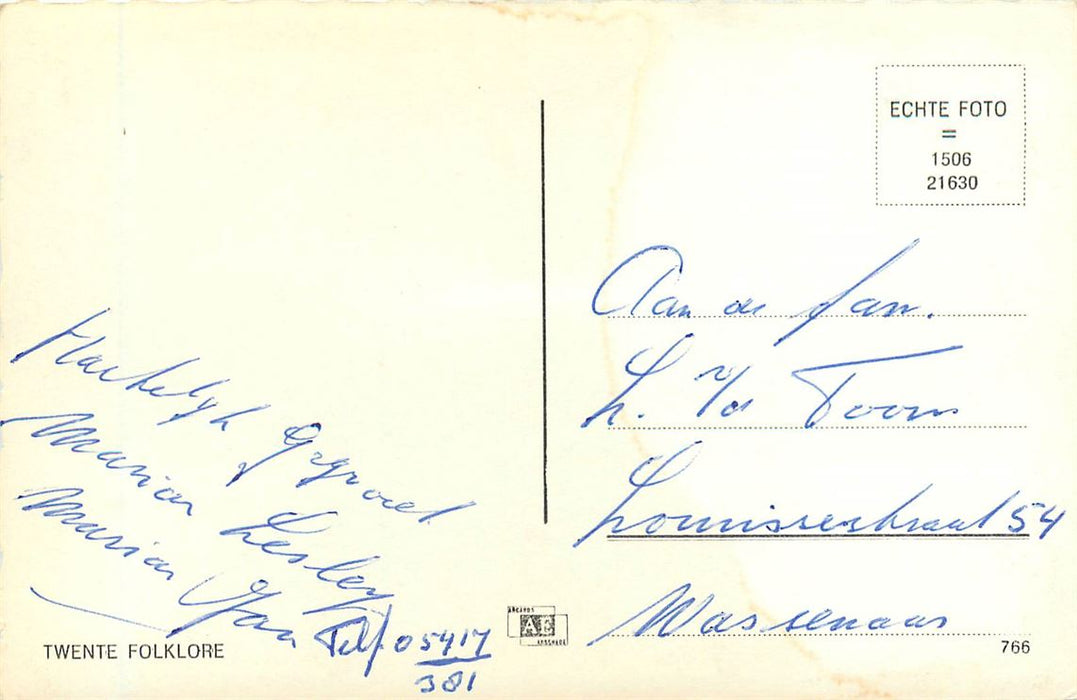 Hartelijk gegroet
Marian Lesley
Marian Jan
Telf 05417
381
TWENTE FOLKLORE
AE
ECHTE FOTO
=
1506
21630
Aan de fam.
L. v/d Toorn
Louisestraat 54
Wassenaar
766